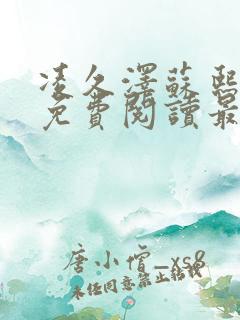 凌久澤蘇熙
免費閱讀最
唐小僧_xs8
未经同意禁止转载